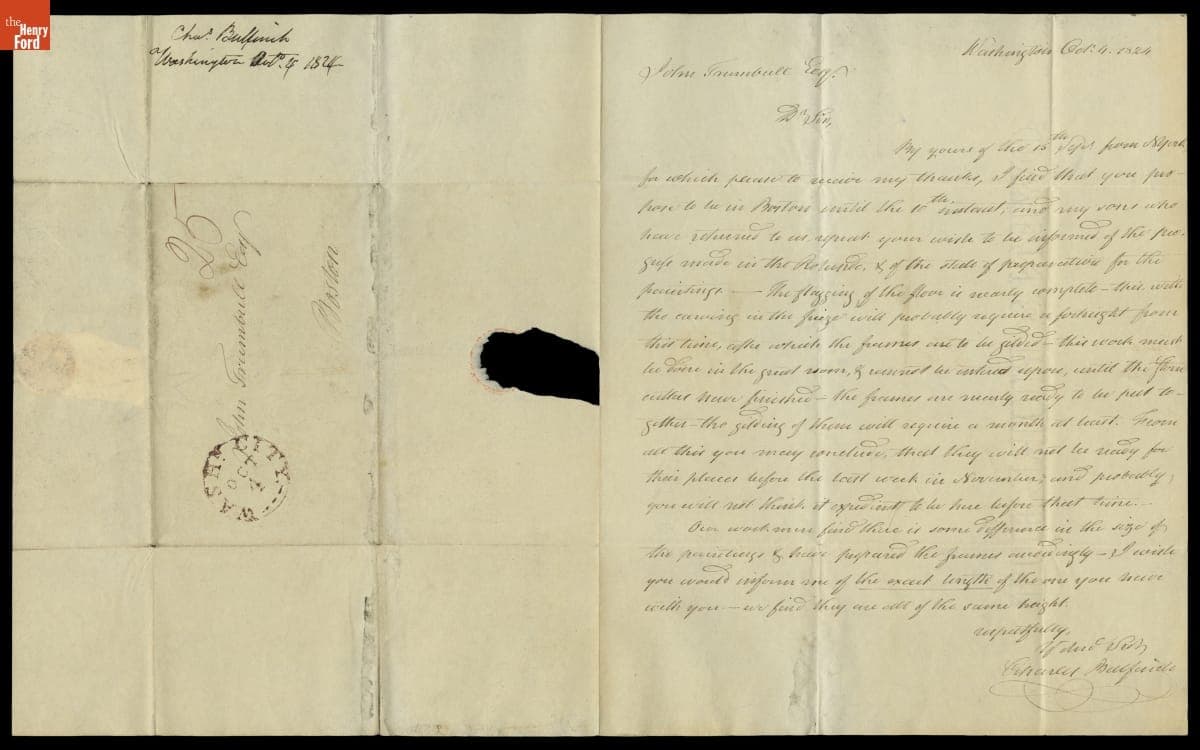 the
Henry
Ford
Chas. Bulfinch
Washington Octo. 4 1824
25
John Trumbull Esq
Boston
WASHN CITY.
OCT
4
Washington Oct. 4. 1824
John Trumbull Esqr.
Dr Sir,
By yours of the 15th Sept from NYork
for which please to receive my thanks, I find that you pro-
pose to be in Boston until the 10th instant, and my sons who
have returned to us repeat your wish to be informed of the pro-
gress made in the Rotunda, & of the state of preparation for the
paintings. — The flagging of the floor is nearly complete – this with
the carving in the frieze will probably require a fortnight from
this time, after which the frames are to be gilded – this work must
be done in the great room, & cannot be entered upon, until the stone
cutters have finished – the frames are nearly ready to be put to-
gether – the gilding of them will require a month at least. From
all this you may conclude, that they will not be ready for
their places before the last week in November, and probably,
you will not think it expedient to be here before that time. –
Our workmen find there is some difference in the size of
the paintings & have prepared the frames accordingly – I wish
you would inform me of the exact length of the one you have
with you – we find they are all of the same height.
respectfully,
Yr obdt Servt,
Charles Bulfinch